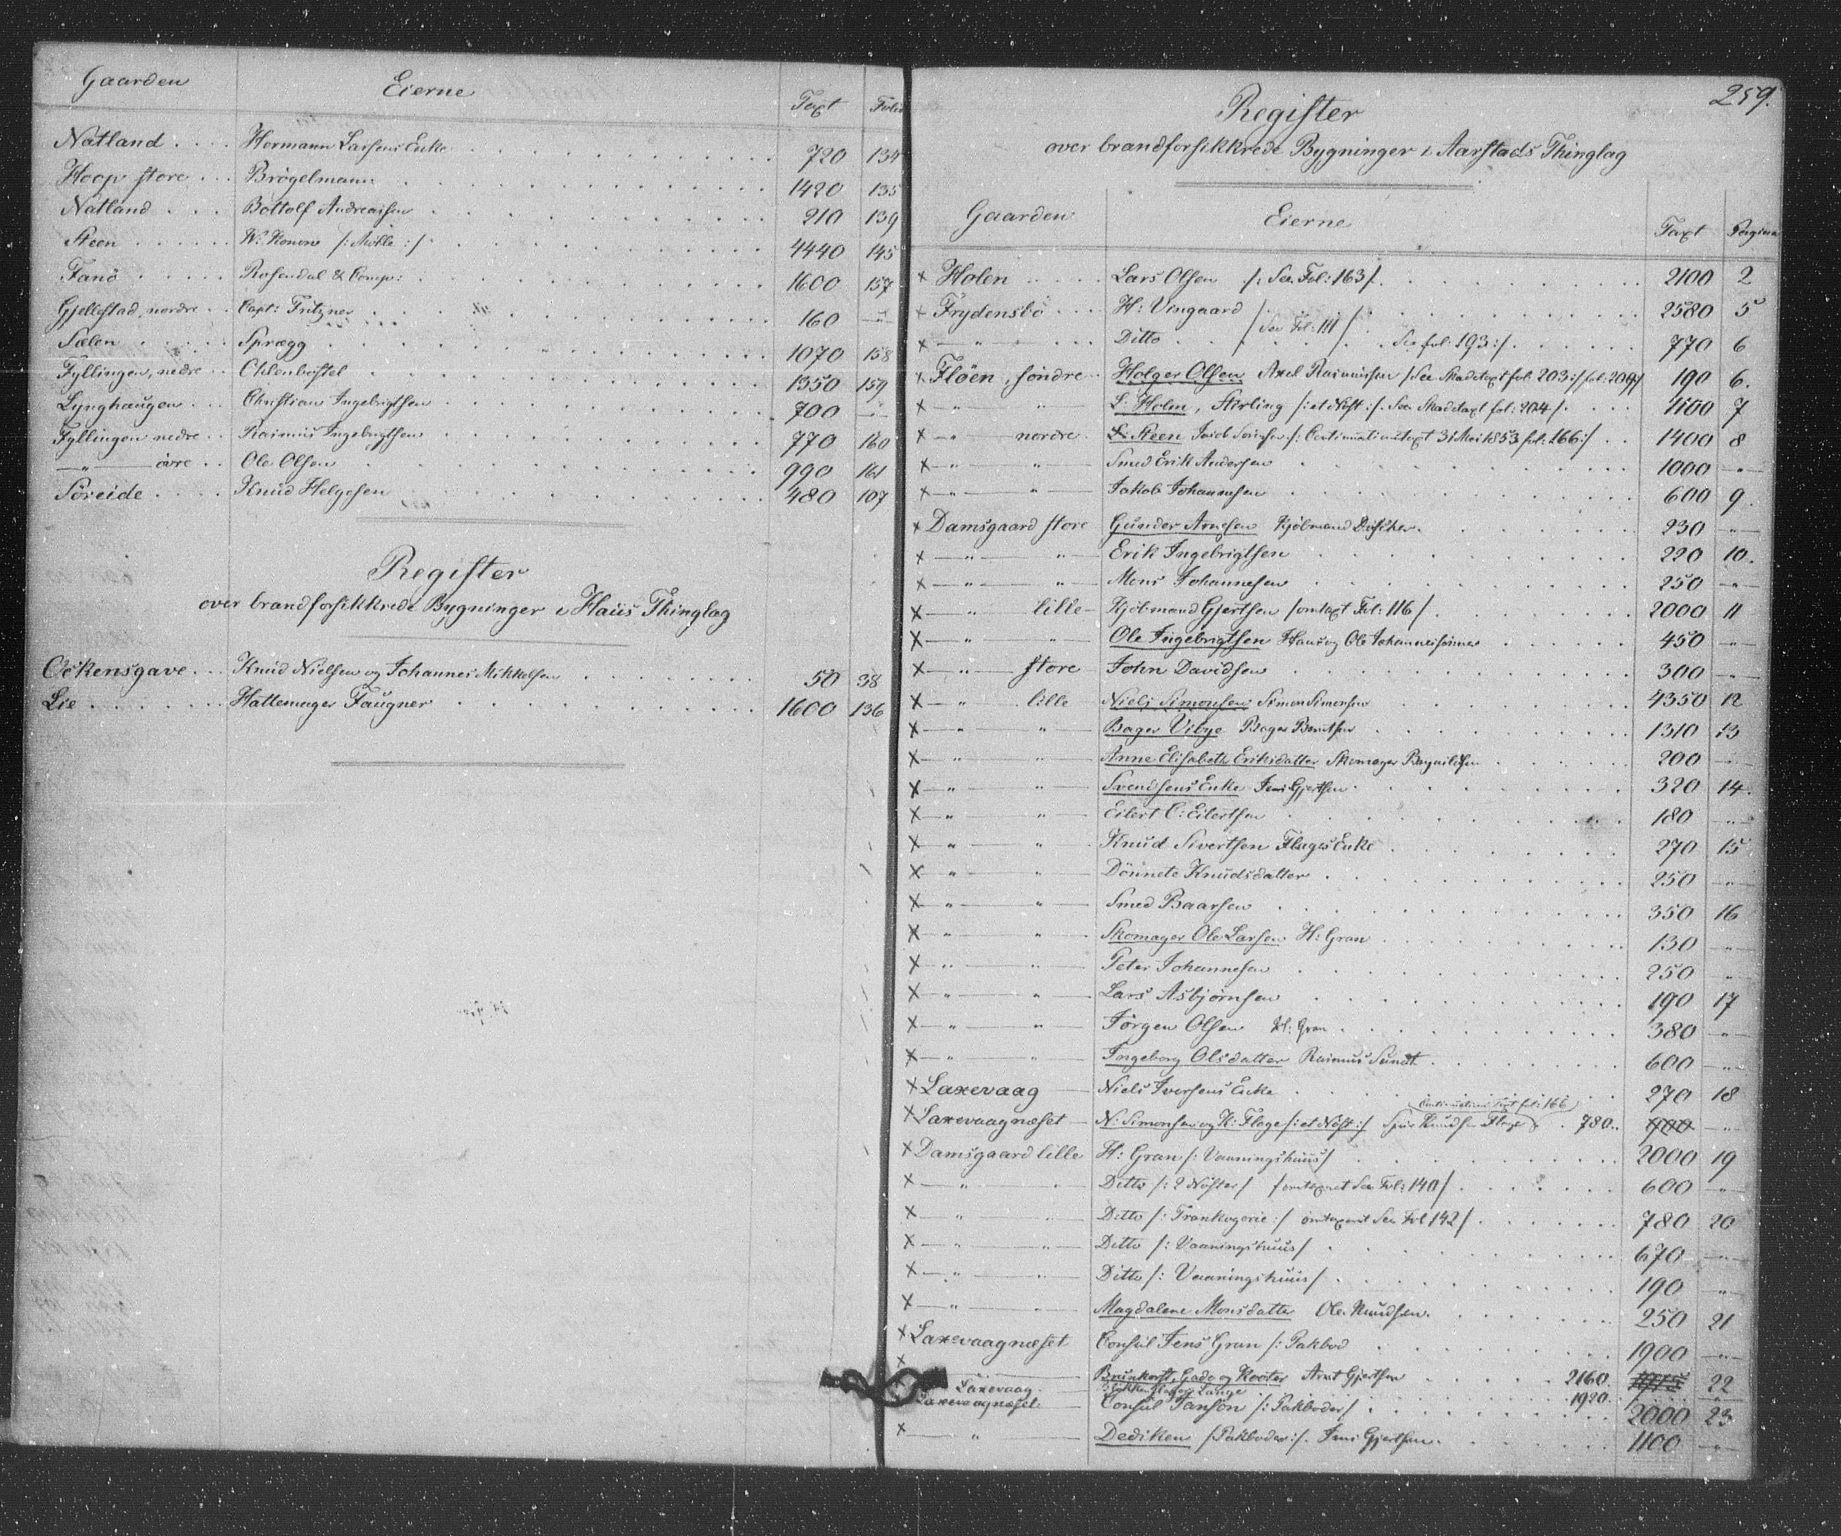 Gaarden Eierne Taxt Folio
Natland Hermann Larsens Enke 720 134
Hoop store Brögelmann 1420 135
Natland Bottolf Andreassen 210 139
Steen W. Konow /: Mölle :/ 4440 145
Fanö Rosendal & Comp: 1600 157
Gjellestad, nordre Capt: Fritzner 160 — " —
Sælen Sprægg 1070 158
Fyllingen, nedre 1350 159
Lynghaugen Christian Ingebrigtsen 700 — " —
Fyllingen nedre Rasmus Ingebrigtsen 770 160
— " — övre Ole Olsen 990 161
Söreide Knud Helgesen 480 107
Register
over brandforsikkrede Bygninger i Haus Thinglag
Knud Nielsen og Johannes Mikkelsen 50 38
Lie Hattemager Faugner 1600 136
259.
Register
over brandforsikkrede Bygninger i Aarstads Thinglag
Gaarden Eierne Taxt Pagina
x Holen Lars Olsen /: See Fol: 163 /. 2100 2
x Frydensbö H: Vingaard / See Fol: 111 / 2580 5
x — " — Ditto See fol: 193 :/ 770 6
x Flöen, söndre Holger Olsen Axel Rasmussen / See Skadetaxt fol. 203 :/ fol. 209 / 190 6.
x — " — " L. Holm, Stirling /: et Nöst :/. See Skadetaxt fol: 204 /. 1100 7
x — " — nordre L. Steen Jacob 31 Mai 1853 fol: 166 :/ 1400 8
x — " — " — Smed Erik Andersen 1000 — " —
x — " — " — Jakob Johannesen 600 9.
x Damsgaard store Gunder Arnesen Kjöbmand 230 — " —
x — " — " — Erik Ingebrigtsen 220 10.
x — " — " — Mons Johannesen 250 — " —
x — " — lille — Kjöbmand Gjertsen / omtaxt Fol: 116 / 2000 11
x — " — " — Ole Ingebrigtsen Hans og Ole Johannessönner 450 — " —
x — " — store John Davidsen 300 — " —
x — " — lille Niels Simonsen Simon Simonsen 4350 12
x — " — " — Bager Vibye Bager Berntsen 1310 13
x — " — " — Anne Elisabeth Eriksdatter Skomager 200 — " —
x — " — " — Svendsens Enke Jens Gjertsen 320 14.
x — " — " — Eilert C: Eilertsen 180 — " —
x — " — " — Knud Sivertsen Flages Enke 270 15
x — " — " — Dönnete Knudsdatter 250 — " —
x — " — " — Smed Baarsen 350 16
x — " — " — Skomager Ole Larsen H: Gran 130 — " —
x — " — " — Peter Johannesen 250 — " —
x — " — " — Lars Asbjörnsen 190 17
x — " — " — Jörgen Olsen H: Gran 380 — " —
x — " — " — Ingeborg Olsdatter Rasmus Sundt 600 — " —
x Laxevaag Niels Iversens Enke 270 18
fol: 166
x Laxevaagnæset N: Simonsen og K: Flage /: et Nöst :/ Knudsen Flage 780. 900 — " —
x Damsgaard lille H: Gran /: Vaaningshuus / 2000 19
x — " — " — Ditto /: 2 Nöster / / omtaxeret See Fol: 140 / 600 — " —
x — " — " — Ditto /: Trankogerie :/ omtaxeret See Fol 142 / 780 20
x — " — " — Ditto /: Vaaningshuus / 670 — " —
x — " — " — Ditto /: Vaaningshuus / 190 — " —
x — " — " — Magdalene Monsdatter Ole Knudsen 250 21
x Laxevaagnæset Consul Jens Gran /: Pakbod 1900 — " —
x Brinkorst, Gade og Arnt Gjertsen 2160. 1975 22
Laxevaag Lange 1920
Laxevaagneset Consul Janson /: Pakboder / 2000 23
x — " — Dediken / Pakboder :/. Jens Gjertsen 1100 — " —